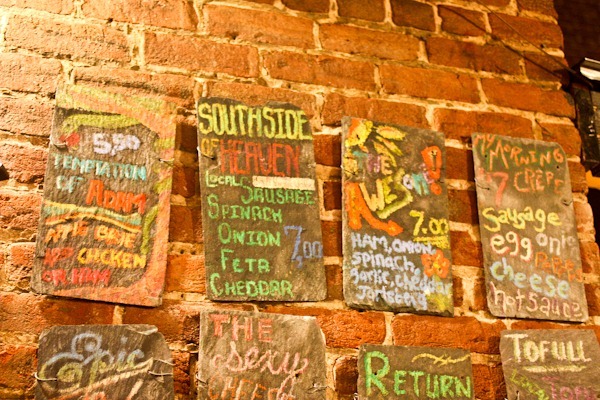 5,90
TEMPTATION
OF ADAM
CHICKEN
OR HAM
SOUTHSIDE
OF HEAVEN
LOCAL SAUSAGE
SPINACH
ONION 7,00
FETA
CHEDDAR
THE
WES
7.00
HAM, ONION
spinach,
garlic, cheddar
Jarlsberg
MORNING
7 CREPE
Sausage
egg onio
cheese
hot sauce
Epic
THE
Sexy
RETURN
TOFULL